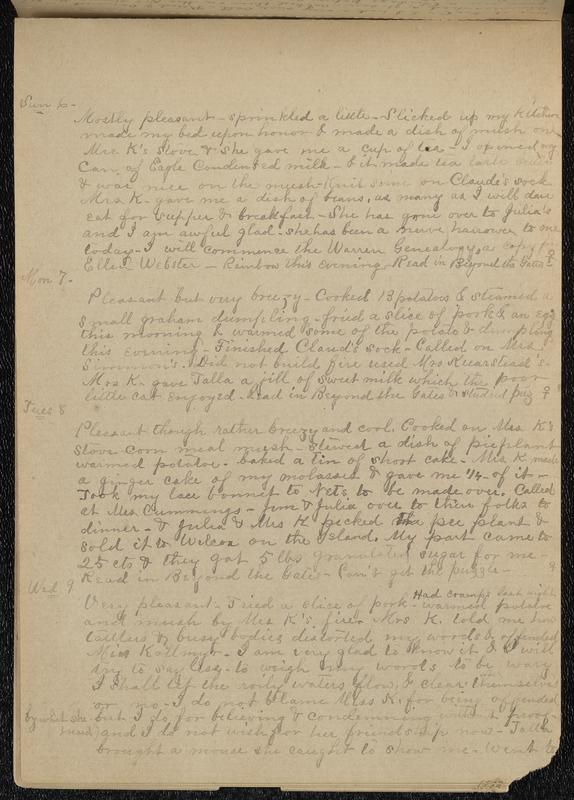 Sun 6-
Mostly pleasant - sprinkled a little - Slicked up my kitchen
made my bed upon honor & made a dish of mush on
Mrs K's stove & she gave me a cup of tea - I opened my
Can of Eagle Condensed milk - & it made tea taste
& was nice on the mush - Knit some on Claude's sock
Mrs K. gave me a dish of beans, as many as I will dare
eat for supper & breakfast - She has gone over to Julia's
and I am awful glad. she has been a nerve harrower to me
today - I will commence the Warren Genealogy, a copy for
Ellen Webster - Rainbow this evening - Read in Beyond the Gates
Mon 7 -
Pleasant but very breezy - Cooked 13 potatoes & steamed a
small graham dumpling - fried a slice of pork & an egg
this morning & warmed some of the potato & dumpling
this evening - Finished Claud's sock - Called on Mrs.
Simmon's - Did not build fire used Mrs Kiearstead's -
Mrs K. gave Talla a gill of sweet milk which the poor
little cat enjoyed - Read in Beyond the Gates & studied puz
Tues 8
Pleasant though rather breezy and cool. Cooked on Mrs K's
stove corn meal mush - stewed a dish of pieplant
warmed potatoe - baked a tin of short cake - Mrs K made
a ginger cake of my molasses & gave me 1/4 of it -
Took my lace bonnet to Nets to be made over. Called
at Mrs Cummings - Jim & Julia over to their folks to
dinner - & Julia & Mrs K picked the pie plant &
sold it to Wilcox on the Island. My part came to
25 cts & they got 5 lbs granulated sugar for me -
Read in Beyond the Gates - Can't get the puzzle -
Wed 9
Had cramps last night
Very pleasant - Fried a slice of pork - warmed potatoe
and mush by Mrs K's fire. Mrs K. told me how
tattlers & busy bodies distorted my words & offended
Miss - I am very glad to know it & I will
try to say less - to weigh my words - to be wary
I shall let the roily waters flow, & clear themselves
or no - I do not blame Miss K. for being offended
By what she heard but I do, for believing & condemning without proof
and I do not wish for her friendship now - Talla
brought a mouse she caught to show me - Went to